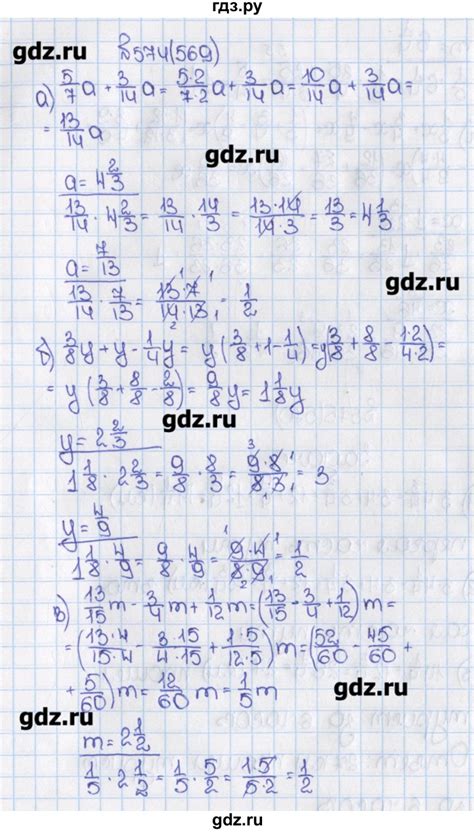 гдз.ру
gdz.ru
№574(569)
а) 5/7 a + 3/14 a = 5·2/7·2 a + 3/14 a = 10/14 a + 3/14 a =
= 13/14 a
gdz.ru
a = 4 2/3
13/14 · 4 2/3 = 13/14 · 14/3 = 13·14/14·3 = 13/3 = 4 1/3
a = 7/13
gdz.ru
13/14 · 7/13 = 13·7/14·13 = 1/2
б) 3/8 y + y - 1/4 y = y(3/8 + 1 - 1/4) = y(3/8 + 8/8 - 1·2/4·2) =
= y(3/8 + 8/8 - 2/8) = 9/8 y = 1 1/8 y
gdz.ru
y = 2 2/3
1 1/8 · 2 2/3 = 9/8 · 8/3 = 9·8/8·3 = 3
gdz.ru
y = 4/9
1 1/8 · 4/9 = 9/8 · 4/9 = 9·4/8·9 = 1/2
в) 13/15 m - 3/4 m + 1/12 m = (13/15 - 3/4 + 1/12) m =
gdz.ru
= (13·4/15·4 - 3·15/4·15 + 1·5/12·5) m = (52/60 - 45/60 +
+ 5/60) m = 12/60 m = 1/5 m
gdz.ru
gdz.ru
m = 2 1/2
1/5 · 2 1/2 = 1/5 · 5/2 = 1·5/5·2 = 1/2
gdz.ru